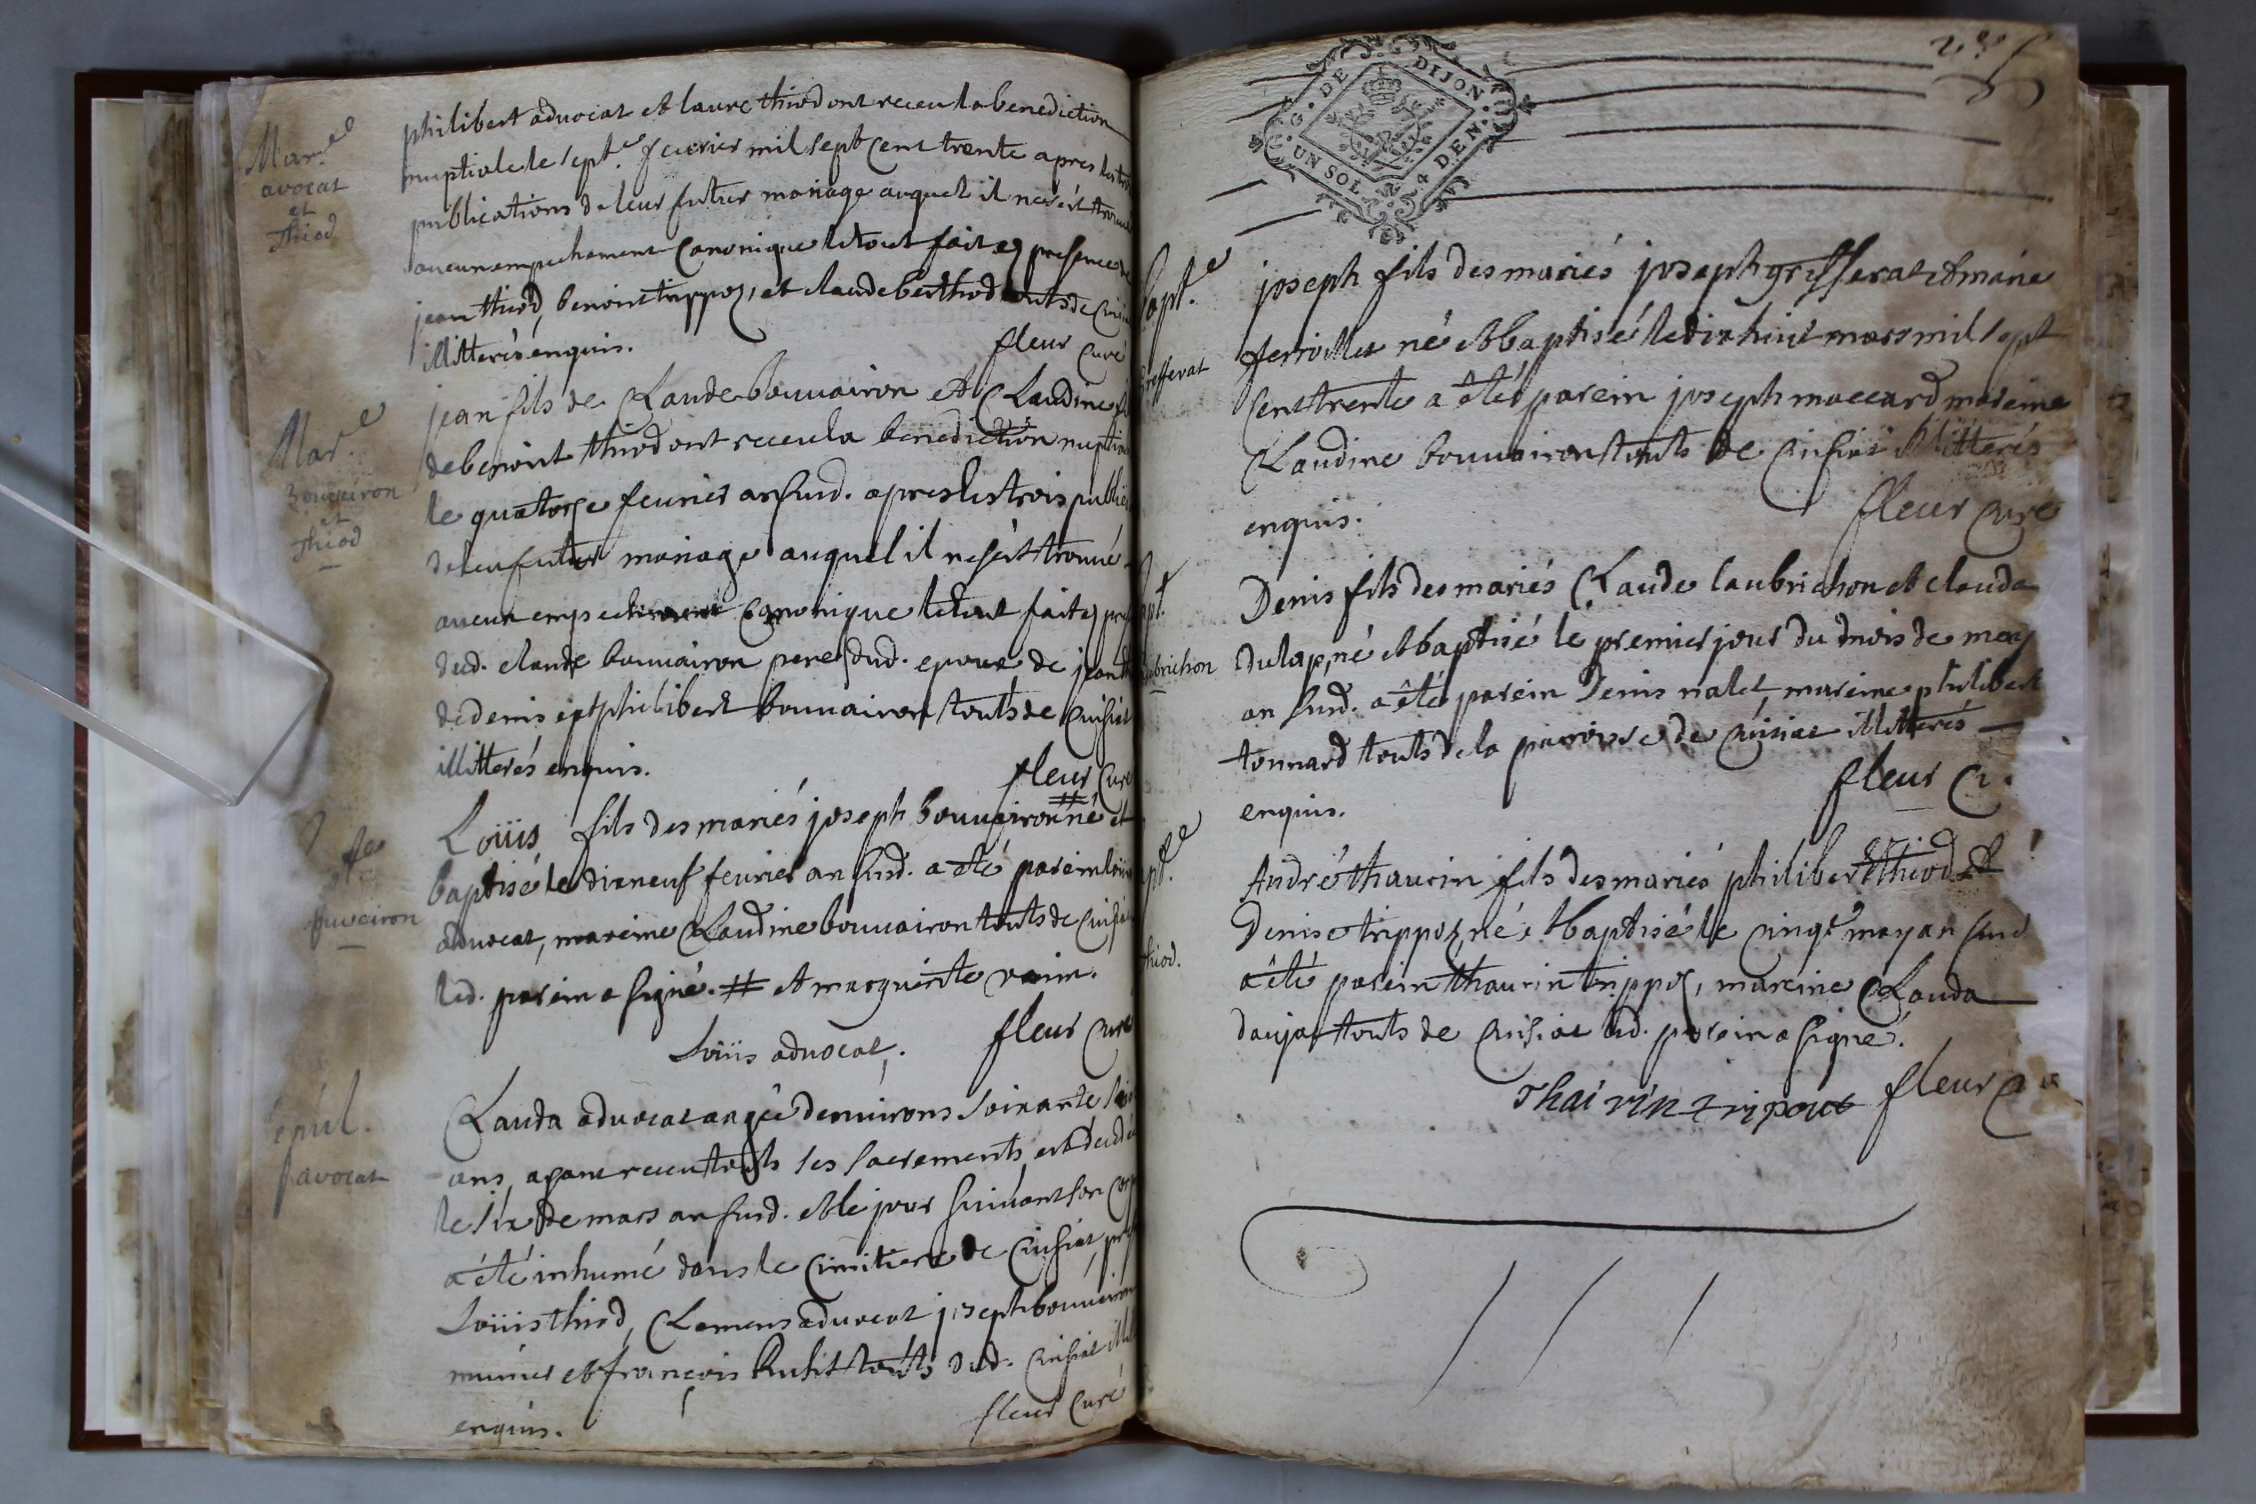 Mar.e
avocat
et
Thiod
philibert aduocat et laure thiod ont receu la benediction
nuptiale le sept.e feurier mil sept cent trente apres les
publications de leur futur mariage auquel il ne s'est trouué
aucun empechement canonique le tout fait en presence de
jean thiod, benoit trippoz, et claude berthod touts de
illitterés enquis.
fleur curé
Mar.e
Bouvairon
et
Thiod
jean fils de Claude bouuairon et Claudine
de benoit thiod ont receu la benediction
le quatorze feurier an susd. apres les trois
de leur futur mariage auquel il ne s'est trouué
aucun empechement canonique le tout fait en
dud. claude bouuairon pere dud. epoux de
de denis et philibert bouuairon touts de Cuisiat
illitterés enquis.
fleur curé
Bouvairon
Loüis fils des mariés joseph bouuairon # né et
baptisé le dix neuf feurier an susd. a été parein
aduocat, mareine Claudine bouuairon touts de
led. parein a signé. # et marguerite
Loüis aduocat,. fleur curé
Sepul.
avocat
Clauda aduocat angée denuirons soixante
ans ayant receu touts ses sacrements est decedée
le six de mars an susd. et le jour suiuant son
a été inhumé dans le cimitiere de Cuisiat,
Loüis thiod, Clemens aduocat joseph bouuairon
munier et françois touts dud. Cuisiat
enquis.
fleur curé
G. DE DIJON.
UN SOL 4 DEN.
Bapt.e
Grefferat
joseph fils des mariés joseph grefferat et marie
né et baptisé le dix huit mars mil sept
cent trente a êté parein joseph maccard mareine
Claudine bouuairon touts de Cuisiat illitterés
enquis.
fleur curé
Bapt.
Laubrichon
Denis fils des mariés Claude laubrichon et clauda
né et baptisé le premier jour du mois de may
an susd. a êté parein Denis nalet, mareine philiberte
tonnard touts de la paroisse de Cuisiat illitterés
enquis.
fleur C.
Bapt.e
Thiod.
André thaurin fils des mariés philibert thiod et
Denise trippoz, né et baptisé le cinqe may an susd
a êté parein thaurin trippoz, mareine Clauda
daujat touts de Cuisiat led. parein a signé.
Thairin tripout fleur